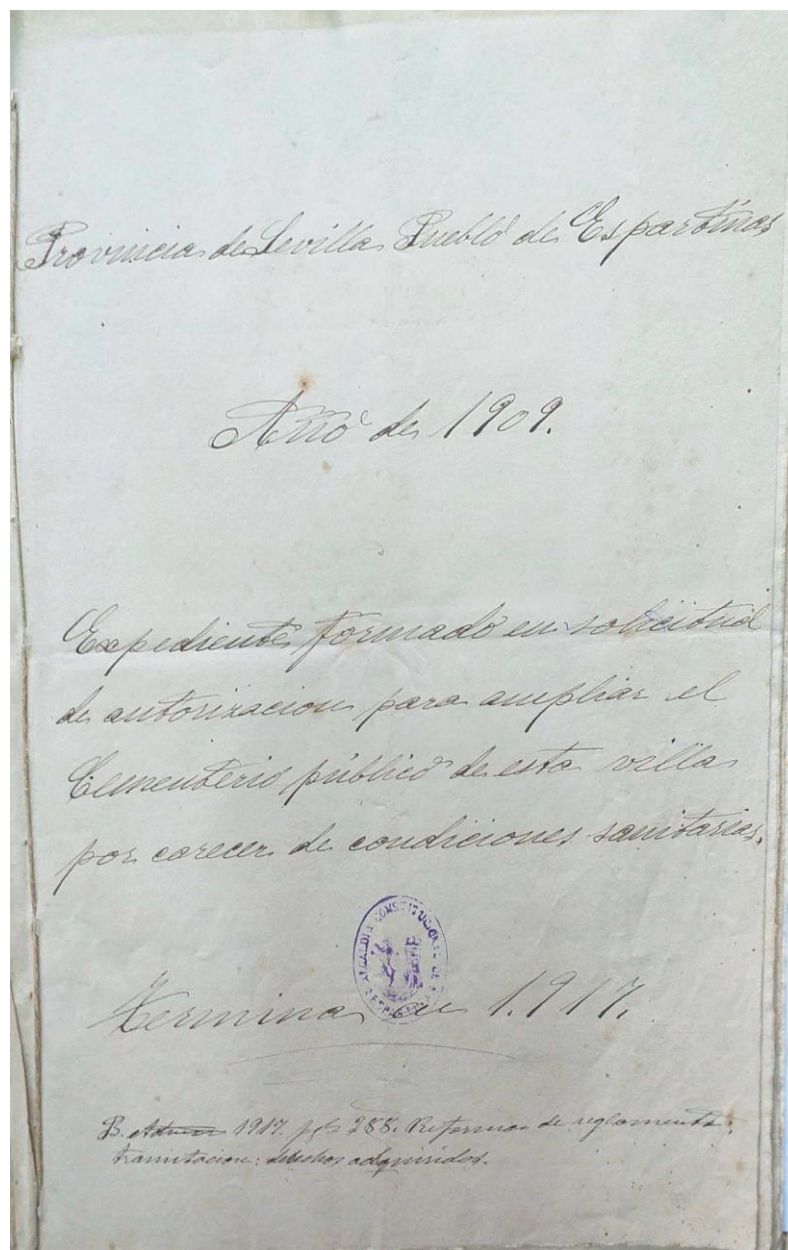 Provincia de Sevilla Pueblo de Espartinas
Año de 1909.
Expediente formado en solicitud
de autorizacion para ampliar el
Cementerio público de esta villa
por carecer de condiciones sanitarias.
ALCALDIA CONSTITUCIONAL DE ESPARTINAS
Termina en 1.917.
B. 1917. pg 288. Reforma de reglamento.
tramitacion: derechos adquiridos.